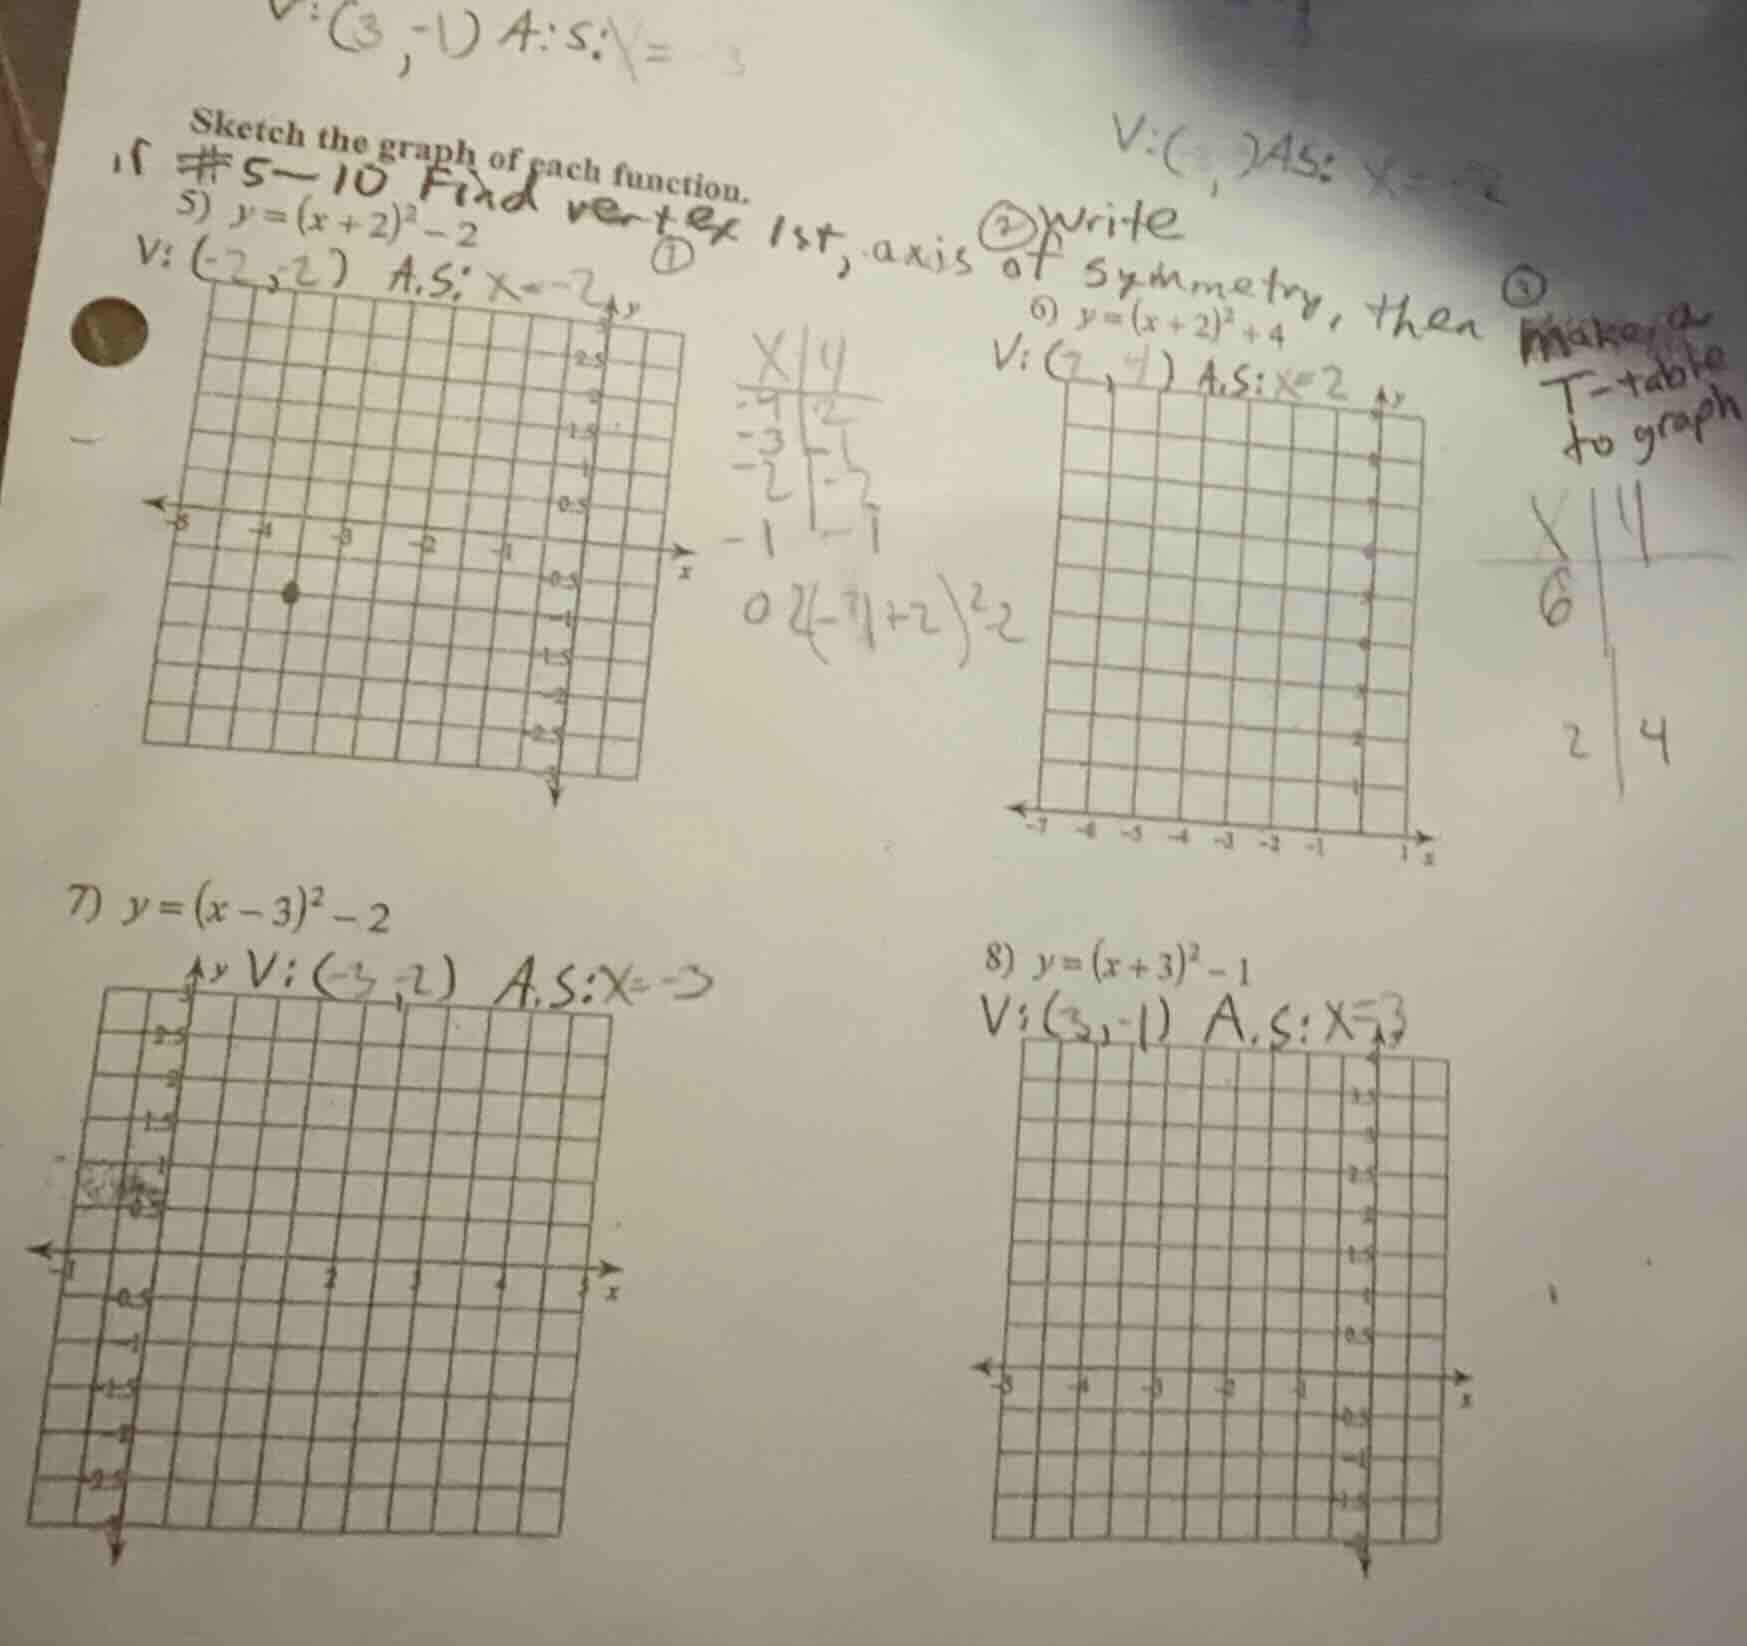 V: (3, -1) A.S: X = 3
V: ( , ) AS: X = -2
Sketch the graph of each function.
#5-10 Find vertex 1st, axis of symmetry, then make a T-table to graph
① ② Write ③
5) y = (x + 2)² − 2
V: (-2, -2) A.S: X = -2
y
2.5
2
1.5
1
0.5
-5 -4 -3 -2 -1
x
-0.5
-1
-1.5
-2
-2.5
X | Y
-4 | 2
-3 | -1
-2 | -2
-1 | -1
0 2
+2)² -2
6) y = (x + 2)² + 4
V: (2, 4) A.S: X = 2
y
-7 -6 -5 -4 -3 -2 -1 1 x
X | Y
6
2 | 4
7) y = (x − 3)² − 2
V: (-3, -2) A.S: X = -3
y
2.5
2
1.5
1
0.5
-1 2 3 4 5
x
-0.5
-1
-1.5
-2
-2.5
8) y = (x + 3)² − 1
V: (3, -1) A.S: X = 3
3.5
3
2.5
2
1.5
1
0.5
-5 -4 -3 -2 -1
x
-0.5
-1
-1.5